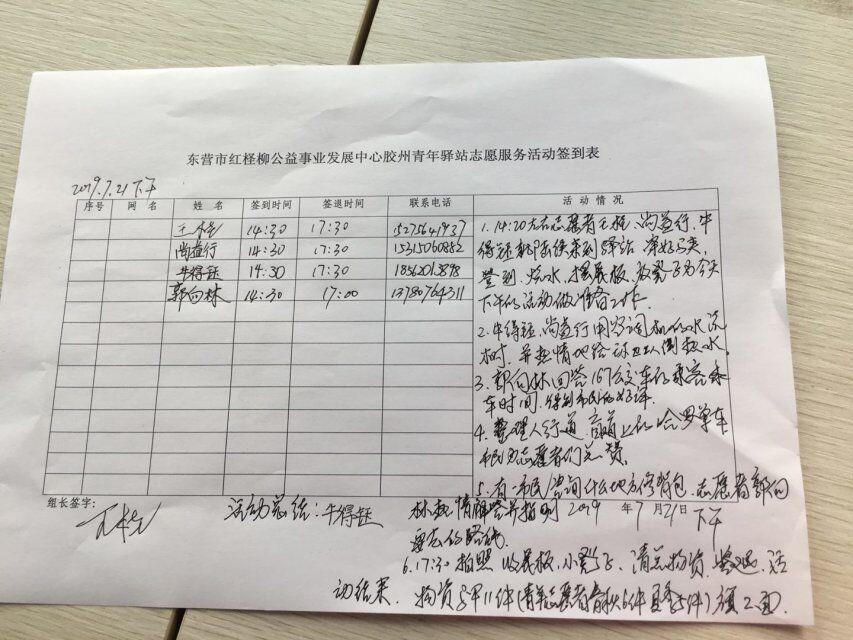 东营市红柽柳公益事业发展中心胶州青年驿站志愿服务活动签到表
2019.7.21下午
序号 网名 姓名 签到时间 签退时间 联系电话 活动情况
14:30 17:30 15275641937
尚益行 14:30 17:30 15315060882
牛得钰 14:30 17:30
郭向林 14:30 17:00 13780764311
1. 14:20左右志愿者王 、尚益行、牛
得钰 陆续来到驿站
签到、烧水、摆展板、 为今天
下午的活动做准备工作。
2. 牛得钰、尚益行用 的水洗
并热情地给 环卫工人倒热水。
3. 郭向林回答167公交车的乘客乘
车时间,得到市民的好评。
4. 整理人行道、盲道上的哈罗单车
市民为志愿者们点赞。
5. 有一市民咨询什么地方修背包,志愿者郭向
林热情解答并指明
要去的路线。
组长签字:
活动总结:牛得钰
2019年7月21日下午
6. 17:30 拍照、收展板、小凳子、清点物资、签退、活
动结束。物资 马甲11件(青年志愿者春秋6件夏季5件)旗2面